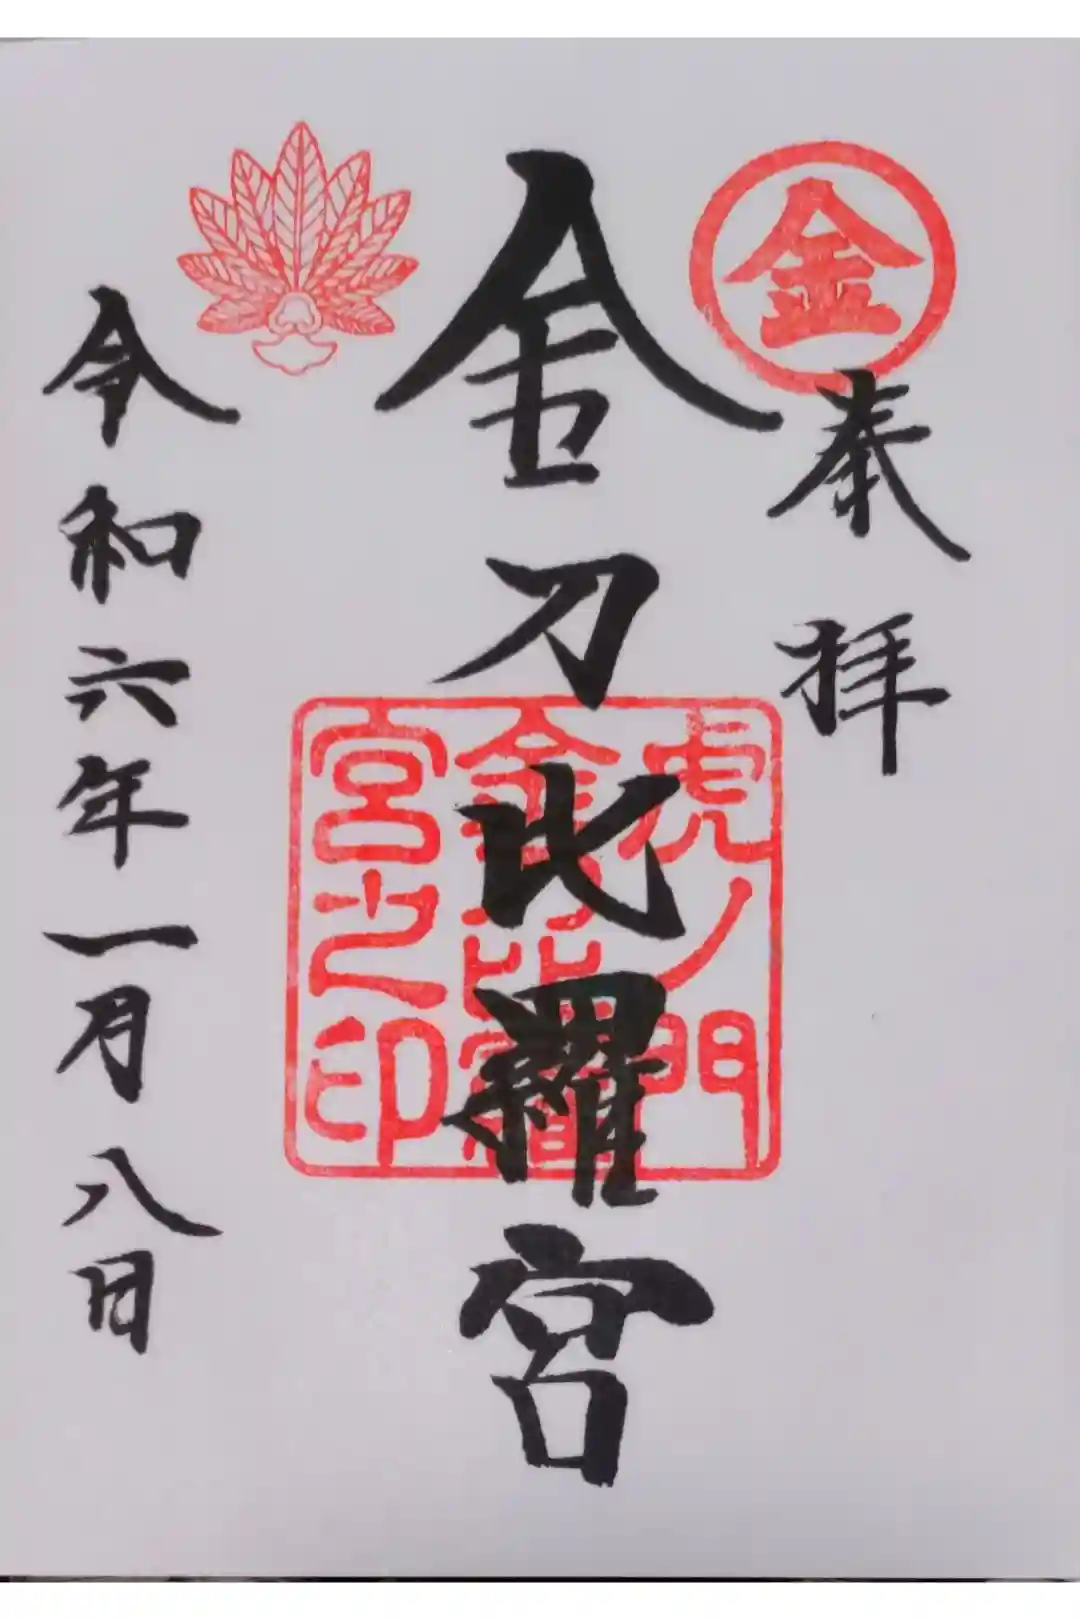 金
奉拝
金刀比羅宮
虎ノ門
金刀比羅
宮之印
令和六年一月八日